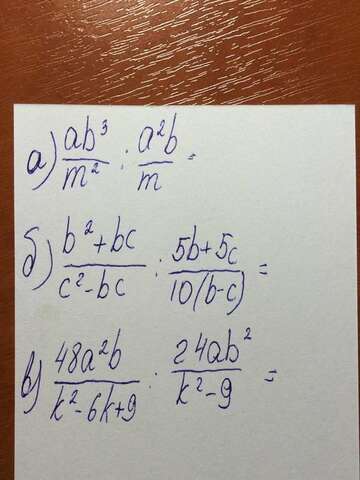 а) ab³/m² : a²b/m =
б) b²+bc/c²-bc : 5b+5c/10(b-c) =
в) 48a²b/k²-6k+9 : 24ab²/k²-9 =